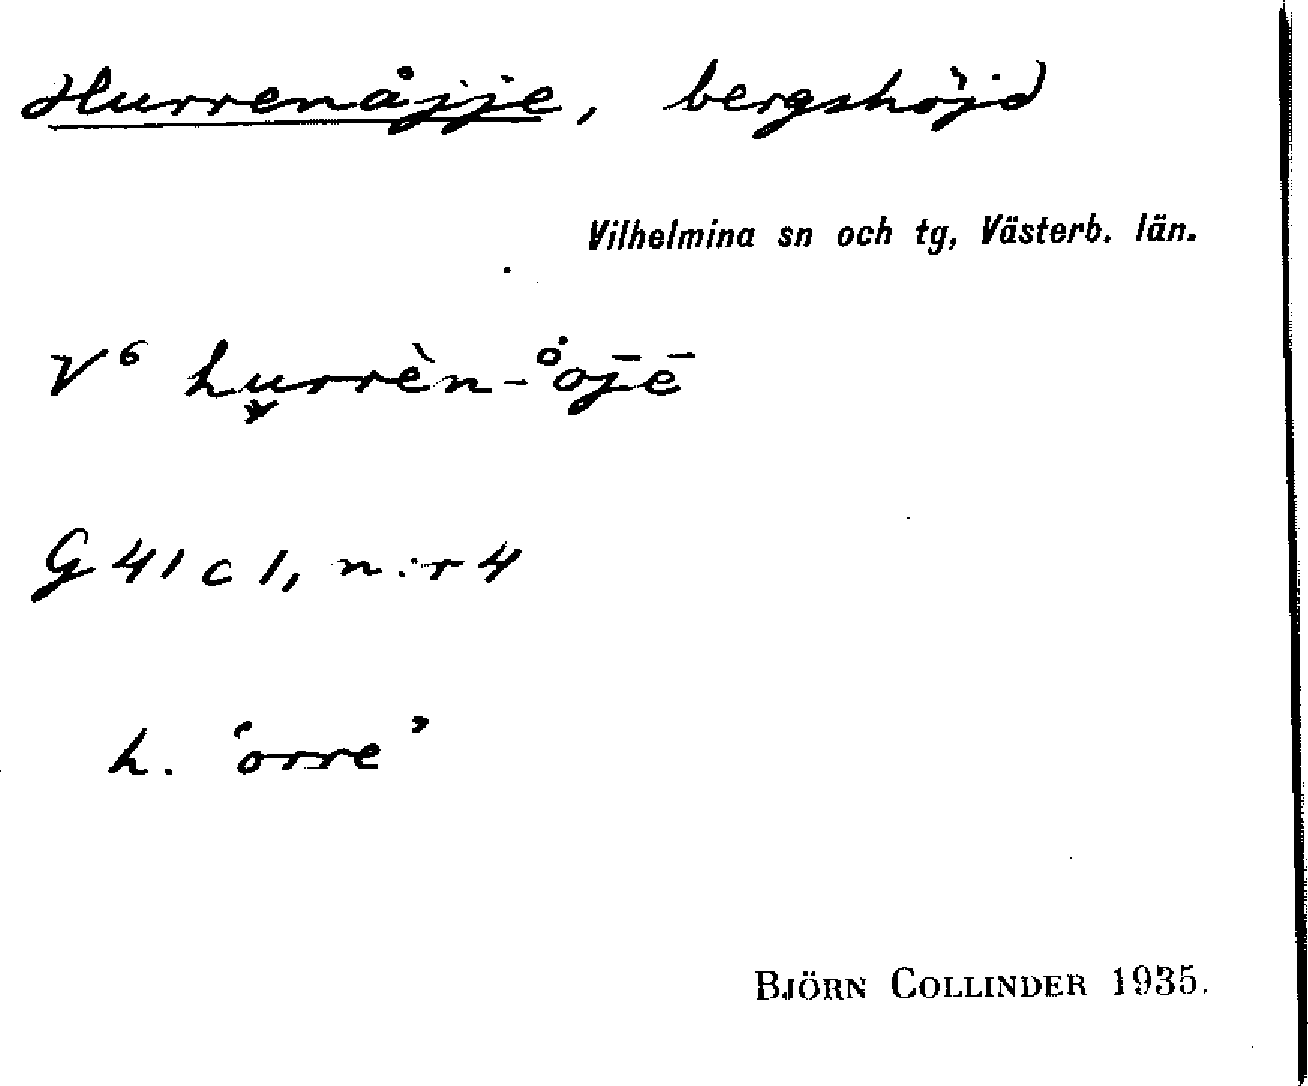 Hurrenåjje, bergshöjd
Vilhelmina sn och tg, Västerb. län.
V⁶ hu̬rrèn-°oj̄ē
G 41 c 1, n:r 4
h. 'orre'
BJÖRN COLLINDER 1935.